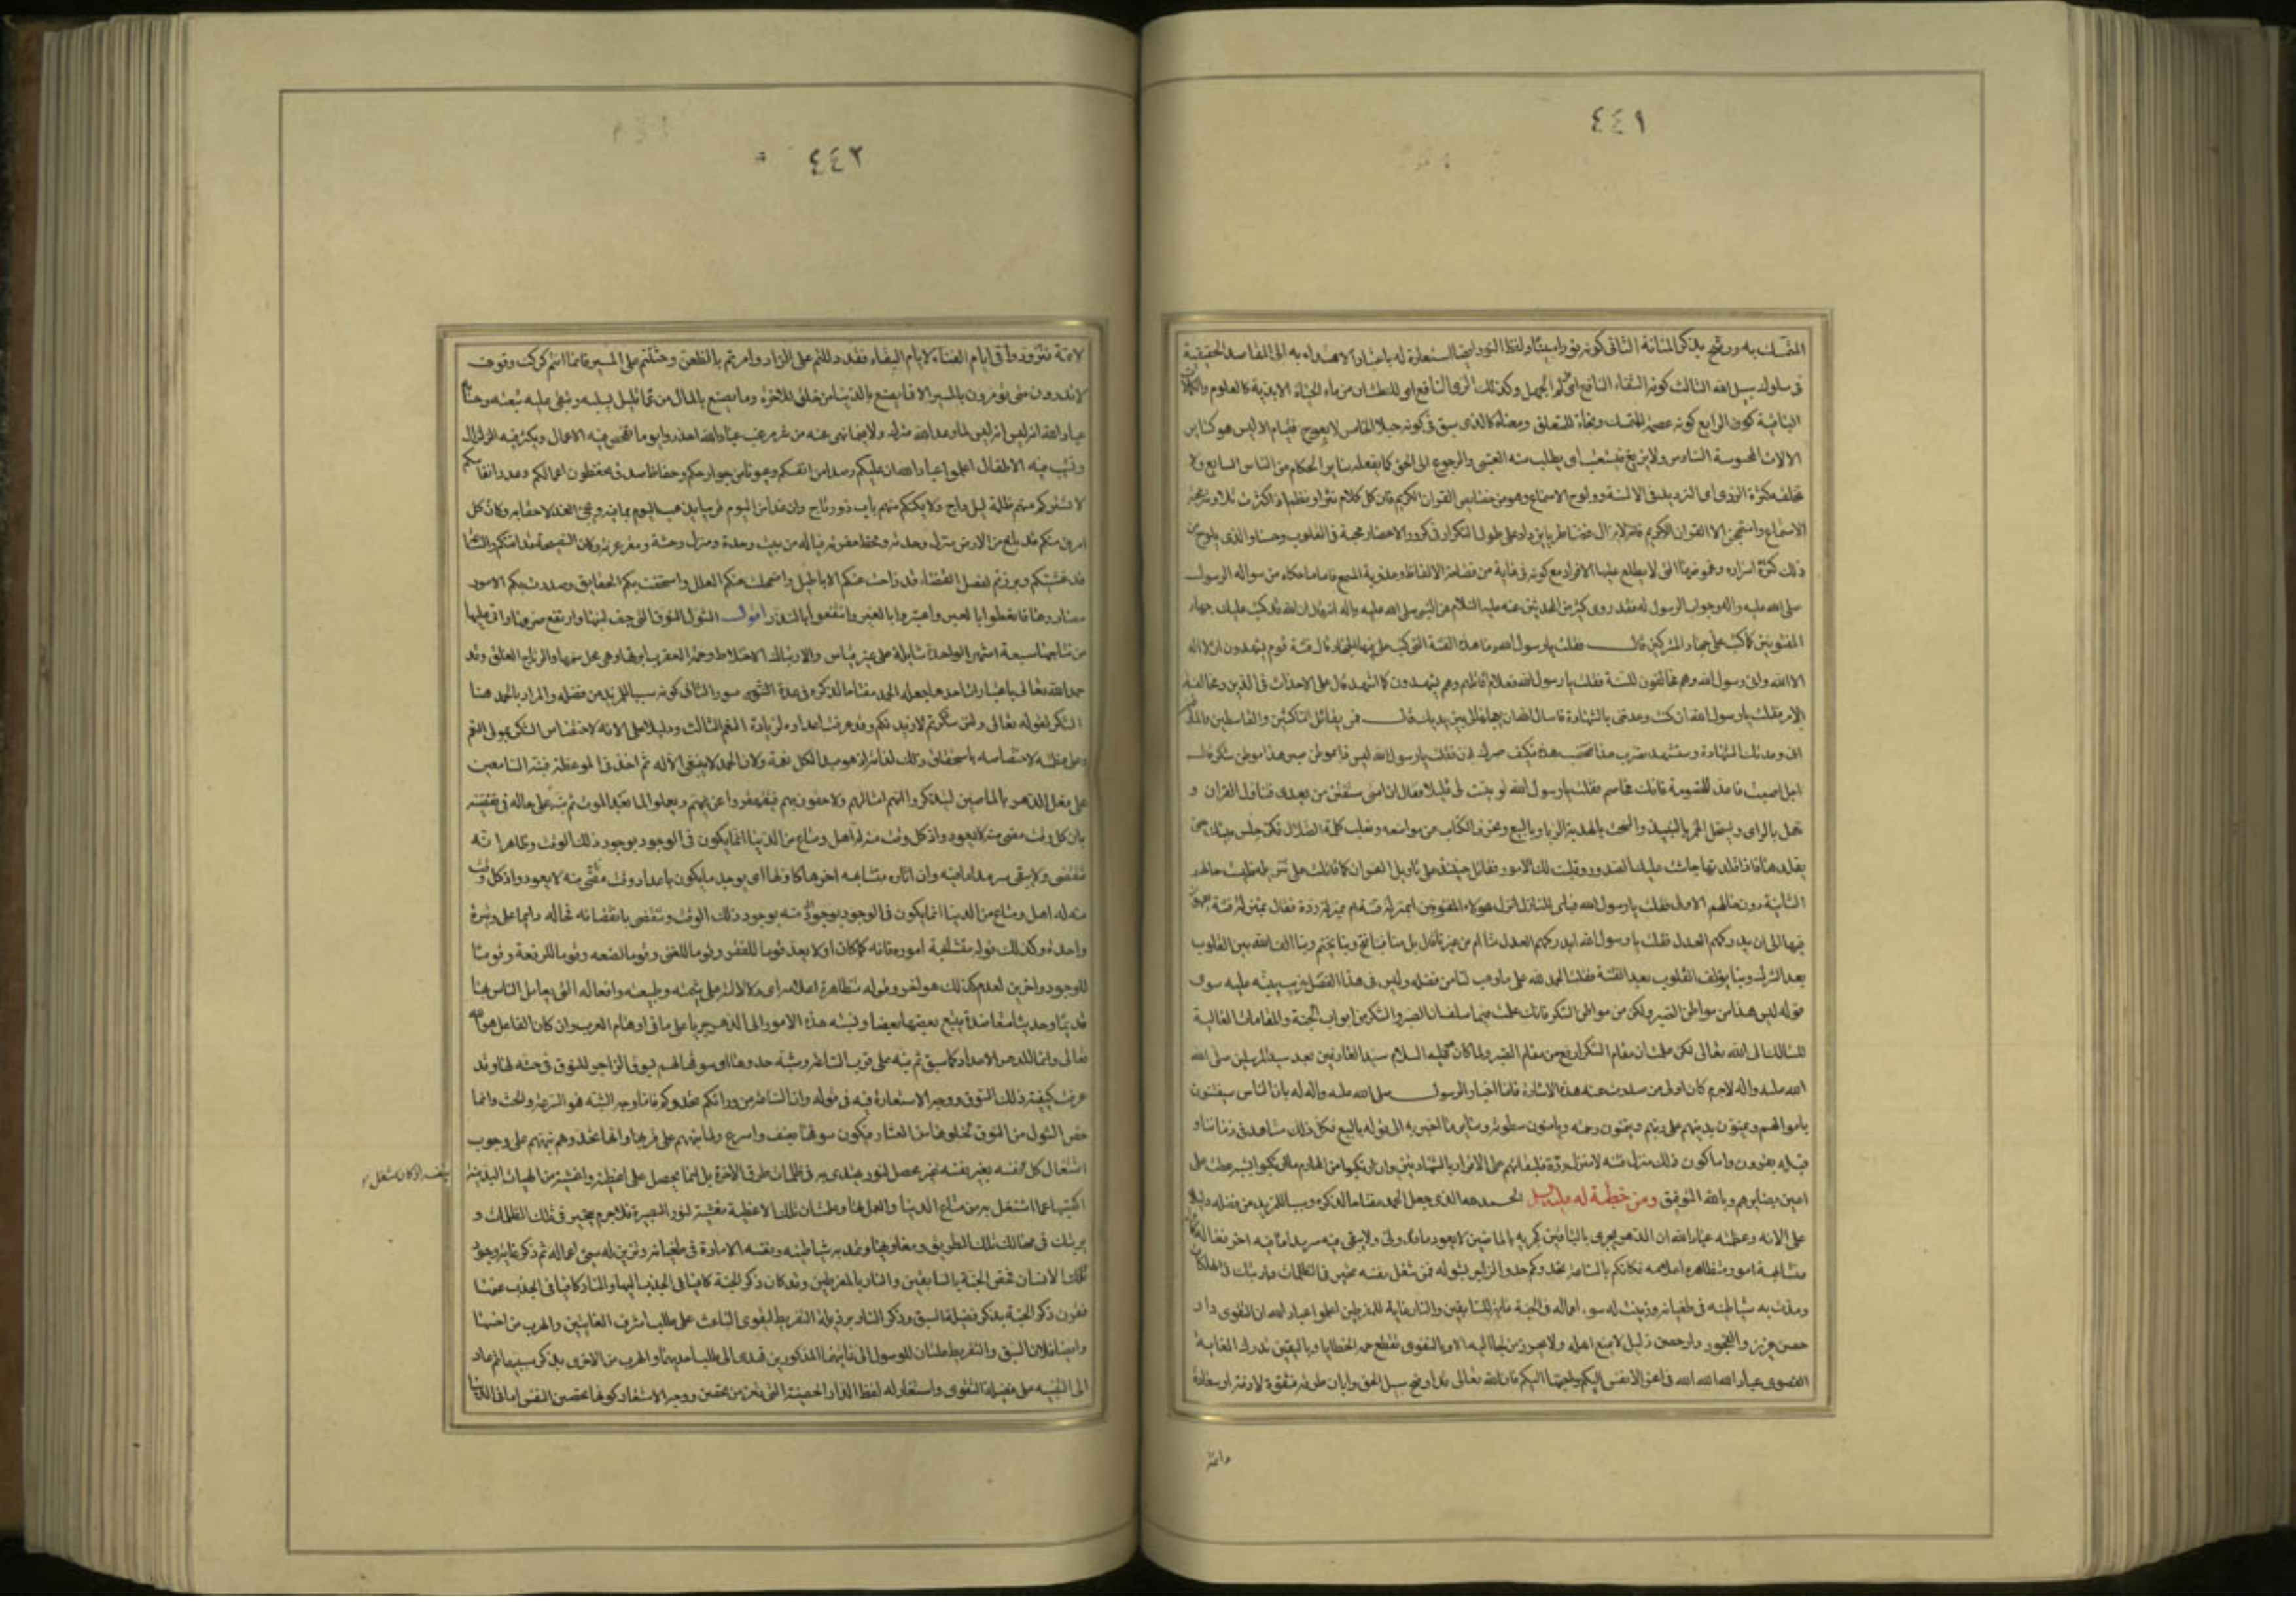 ٤٤١
المتمسك به ورشح بذكر المتانة الثانى كونه نورا مبينا ولفظ النور ايضا استعارة له باعتبار الاهتداء به الى المقاصد الحقيقية
فى سلوك سبيل الله الثالث كونه الشفاء النافع اى الجهل وكذلك الرى الناقع اى للعطشان من ماء الحياة الابدية كالعلوم والكمالات
الرابع كونه عصمة للمتمسك ونجاة للمتعلق ومعناه كالذى سبق فى كونه حبلا الخامس لا يعوج فيقام اذ ليس هو كساير
الالات المحسوسة السادس ولا يزيغ فيستعتب اى يطلب منه العتبى والرجوع الى الحق كما يفعله ساير الحكام من الناس السابع ولا
تخلقه كثرة الرد اى الترديد فى الالسنة وولوج الاسماع وهو من خصايص القران الكريم فان كل كلام نثر او نظم اذا كثرت تلاوته مجته
الاسماع واستهجن الا القران الكريم فانه لا يزال غضا طريا يزداد على طول التكرار فى كرور الاعصار محبة فى القلوب وحسنا والذى يلوح من
ذلك كثرة اسراره وغموضها التى لا يطلع عليها الا الافراد مع كونه فى غاية من فصاحة الالفاظ وعذوبة المسمع فاما ما حكاه من سواله الرسول
صلى الله عليه واله وجواب الرسول له فقد روى كثير من المحدثين عنه عليه السلام عن النبى صلى الله عليه واله انه قال ان الله قد كتب عليك جهاد
المفتونين كما كتب على جهاد المشركين قال فقلت يا رسول الله ما هذه الفتنة التى كتب على فيها الجهاد قال فتنة قوم يشهدون ان لا اله
الا الله وانى رسول الله وهم مخالفون للسنة فقلت يا رسول الله فعلام اقاتلهم وهم يشهدون كما اشهد قال على الاحداث فى الدين ومخالفة
الامر فقلت يا رسول الله انك كنت وعدتنى بالشهادة فاسال الله ان يعجلها لى بين يديك قال فمن يقاتل الناكثين والقاسطين والمارقين
اما انى وعدتك الشهادة وستستشهد تضرب هذا فتخضب هذه فكيف صبرك اذن فقلت يا رسول الله ليس ذا موطن صبر هذا موطن شكر قال
اجل اصبت فاعد للخصومة فانك مخاصم فقلت يا رسول الله لو بينت لى قليلا فقال ان امتى ستفتن من بعدى فتتاول القران و
تعمل بالراى وتستحل الخمر بالنبيذ والسحت بالهدية والربا بالبيع وتحرف الكتاب عن مواضعه وتغلب كلمة الضلال فكن حلس بيتك حتى
تقلدها فاذا قلدتها جاشت عليك الصدور وقلبت لك الامور فقاتل حينئذ على تاويل القران كما قاتلت على تنزيله فليست حالهم
الثانية دون حالهم الاولى فقلت يا رسول الله فباى المنازل انزل هولاء المفتونين ابمنزلة فتنة ام بمنزلة ردة فقال بمنزلة فتنة يعمهون
فيها الى ان يدركهم العدل فقلت يا رسول الله ايدركهم العدل منا ام من غيرنا قال بل منا بنا فتح وبنا يختم وبنا الف الله بين القلوب
بعد الشرك وبنا يؤلف القلوب بعد الفتنة فقلت الحمد لله على ما وهب لنا من فضله وليس فى هذا الفصل غريب ينبه عليه سوى
قوله ليس هذا من مواطن الصبر ولكن من مواطن الشكر فانك علمت فيما سلف ان الصبر والشكر من ابواب الجنة والمقامات العالية
للسالك الى الله تعالى لكن علمت ان مقام الشكر ارفع من مقام الصبر ولما كان عليه السلام سيد العارفين بعد سيد المرسلين صلى الله
الله عليه واله لا جرم كان اولى من صدرت عنه هذه الاشارة فاما اخبار الرسول صلى الله عليه واله له بان الناس سيفتنون
باموالهم ويمنون بدينهم على ربهم ويتمنون رحمته ويامنون سطوته وساير ما اخبر به الى قوله بالبيع فكل ذلك مشاهد فى زماننا و
قبله بقرون واما كون ذلك منزلة فتنة لا منزلة ردة فلبقائهم على الاقرار بالشهادتين وان ارتكبوا من المحارم ما ارتكبوا لشبه غطت على
اعين بصايرهم وبالله التوفيق ومن خطبة له عليه السلم الحمد لله الذى جعل الحمد مفتاحا لذكره وسببا للمزيد من فضله ودليلا
على الائه وعظمته عباد الله ان الدهر يجرى بالباقين كجريه بالماضين لا يعود ما قد ولى ولا يبقى فيه سرمدا ما فيه اخر فعاله كاوله
متشابهة اموره متظاهرة اعلامه فكانكم بالساعة تحدوكم حدو الزاجر بشوله فمن شغل نفسه بغير نفسه تحير فى الظلمات وارتبك فى الهلكات
ومدت به شياطينه فى طغيانه وزينت له سيىء اعماله فالجنة غاية السابقين والنار غاية المفرطين اعلموا عباد الله ان التقوى دار
حصن عزيز والفجور دار حصن ذليل لا يمنع اهله ولا يحرز من لجا اليه الا وبالتقوى تقطع حمة الخطايا وباليقين تدرك الغاية
القصوى عباد الله الله الله فى اعز الانفس عليكم واحبها اليكم فان الله تعالى قد اوضح سبيل الحق وابان طرقه فشقوة لازمة او سعادة
دائمة
٤٤٢
دائمة فتزودوا فى ايام الفناء لايام البقاء فقد دللتم على الزاد وامرتم بالظعن وحثثتم على المسير فانما انتم كركب وقوف
لا تدرون متى تؤمرون بالمسير الا فما يصنع بالدنيا من خلق للاخرة وما يصنع بالمال من عما قليل يسلبه وتبقى عليه تبعته وحسابه
عباد الله انه ليس لما وعد الله من الخير مترك ولا فيما نهى عنه من الشر مرغب عباد الله احذروا يوما تفحص فيه الاعمال ويكثر فيه الزلزال
وتشيب فيه الاطفال اعلموا عباد الله ان عليكم رصدا من انفسكم وعيونا من جوارحكم وحفاظ صدق يحفظون اعمالكم وعدد انفاسكم
لا تستركم منهم ظلمة ليل داج ولا يكنكم منهم باب ذو رتاج وان غدا من اليوم قريب يذهب اليوم بما فيه ويجىء الغد لاحقا به وكان كل
امرئ منكم قد بلغ من الارض منزل وحدته ومخط حفرته فيا له من بيت وحدة ومنزل وحشة ومفرد غربة وكان الصيحة قد اتتكم والساعة
قد غشيتكم وبرزتم لفصل القضاء قد زاحت عنكم الاباطيل واضمحلت عنكم العلل واستحقت بكم الحقايق وصدرت بكم الامور
مصادرها فاتعظوا بالعبر واعتبروا بالغير وانتفعوا بالنذر اقول الشول النوق التى جف لبنها وارتفع ضرعها واتى عليها
من نتاجها سبعة اشهر الواحدة شايلة على غير قياس والارتباك الاختلاط وحمة العقرب ابرتها وهى محل سمها والرتاج الغلق وقد
حمد الله تعالى باعتبارات احدها جعله الحمد مفتاحا لذكره فى عدة سور الثانى كونه سببا للمزيد من فضله والمراد بالحمد هنا
الشكر لقوله تعالى ولئن شكرتم لازيدنكم وقد عرفت اعداده لزيادة النعم الثالث ودليلا على الائه لاختصاص الشكر بمولى النعم
وعلى عظمته لاختصاصه باستحقاق ذلك لذاته اذ هو مبدا لكل نعمة ولان الحمد لا ينبغى الا له ثم اخذ فى الموعظة فنبه السامعين
على فعل الدهر بالماضين ليتذكروا انهم امثالهم ولاحقون بهم فيقهقروا عن غيهم ويعملوا لما بعد الموت ثم نبه على حاله فى تقضيه
بان كل وقت مضى منه لا يعود واذ كل وقت منه له اهل ومتاع من الدنيا انما يكون فى الوجود بوجود ذلك الوقت وظاهر انه
تنقضى ولا يبقى سرمدا ما فيه وان اثاره متشابهة اخرها كاولها اى يوجد ما يكون باعداد وقت مضى منه لا يعود واذ كل وقت
منه له اهل ومتاع من الدنيا انما يكون فى الوجود بوجود ذلك الوقت وتنقضى بانقضائه فحاله دايما على وتيرة
واحدة وكذلك قوله متشابهة اموره فانه كما كان اولا يعد قوما للفقر وقوما للغنى وقوما للضعة وقوما للرفعة وقوما
للوجود واخرين للعدم كذلك هو اخرا وقوله متظاهرة اعلامه اى دلالاته على شيمته وطبيعته وافعاله التى يعامل الناس بها
قديما وحديثا متعاضدة يتبع بعضها بعضا ونسبة هذه الامور الى الدهر جريا على ما فى اوهام العرب وان كان الفاعل هو الله
تعالى وانما الدهر الاعداد كما سبق ثم نبه على قرب الساعة وشبه حدوها اى سوقها لهم بسوق الزاجر للنوق فى حثه لها وقد
عرفت كيفية ذلك السوق ووجه الاستعارة فيه فى قوله وان الساعة من ورائكم تحدوكم فاما وجه الشبه فهو السرعة والحث وانما
خص الشول من النوق لخلوها من العشار فيكون سوقها بعنف واسرع ولما نبههم على قربها وانها تحدوهم نبههم على وجوب
اشتغال كل بنفسه لان من شغل نفسه بغير نفسه لم يحصل لنور يهتدى به فى ظلمات طرق الاخرة بل انما يحصل على اغطية واغشية من الهيات البدنية
اكتسبها عما اشتغل به من متاع الدنيا والعمل لها وعلمت ان تلك الاغطية مغشية لنور البصيرة فلا جرم يتحير فى تلك الظلمات و
يرتبك فى مهالك تلك الطريق ومغاويها وتمد به شياطينه ونفسه الامارة فى طغيانه وتزين له سيىء اعماله ثم ذكر غاية وجود
الانسان فخص الجنة بالسابقين والنار بالمفرطين وقد كان ذكر الجنة كافيا فى الجذب اليها والنار كافيا فى الجذب عنها
فقرن ذكر الجنة بذكر فضيلة السبق وذكر النار برذيلة التفريط ليقوى الباعث على طلب اشرف الغايتين والهرب من اخسهما
وايضا فلان السبق والتفريط علتان للوصول الى غايتيهما المذكورتين فهدى الى طلب احديهما والهرب من الاخرى بذكر سببهما ثم عاد
الى التنبيه على فضيلة التقوى واستعار له لفظ الدار الحصينة التى تحرز من تحصن ووجه الاستعارة كونها تحصن النفس اما فى الدنيا